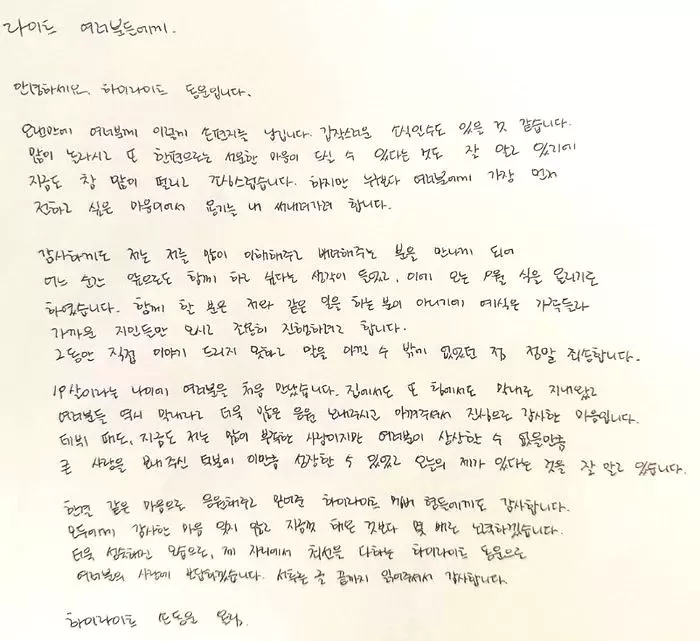 라이트 여러분들에게.
안녕하세요, 하이라이트 동운입니다.
오랜만에 여러분께 이렇게 손편지를 남깁니다. 갑작스러운 소식일수도 있을 것 같습니다.
많이 놀라시고 또 한편으로는 서운한 마음이 드실 수 있다는 것도 잘 알고 있기에
지금도 참 많이 떨리고 조심스럽습니다. 하지만 누구보다 여러분에게 가장 먼저
전하고 싶은 마음이어서 용기를 내 써내려가려 합니다.
감사하게도 저는 저를 많이 이해해주고 배려해주는 분을 만나게 되어
어느 순간 앞으로도 함께 하고 싶다는 생각이 들었고, 이에 오는 9월 식을 올리기로
하였습니다. 함께 할 분은 저와 같은 일을 하는 분이 아니기에 예식은 가족들과
가까운 지인들만 모시고 조용히 진행하려고 합니다.
그동안 직접 이야기 드리지 못하고 말을 아낄 수 밖에 없었던 점 정말 죄송합니다.
19살이라는 나이에 여러분을 처음 만났습니다. 집에서도 또 팀에서도 막내로 지내왔고
여러분들 역시 막내라고 더욱 많은 응원 보내주시고 아껴주셔서 진심으로 감사한 마음입니다.
데뷔 때도, 지금도 저는 많이 부족한 사람이지만 여러분이 상상할 수 없을만큼
큰 사랑을 보내 주신 덕분에 이만큼 성장할 수 있었고 오늘의 제가 있다는 것을 잘 알고 있습니다.
한결 같은 마음으로 응원해주고 믿어준 하이라이트 멤버 형들에게도 감사합니다.
모두에게 감사한 마음 잊지 않고 지금껏 해온 것보다 몇 배로 노력하겠습니다.
더욱 성숙해진 모습으로, 제 자리에서 최선을 다하는 하이라이트 동운으로
여러분의 사랑에 보답하겠습니다. 서투른 글 끝까지 읽어주셔서 감사합니다.
하이라이트 손동운 올림.